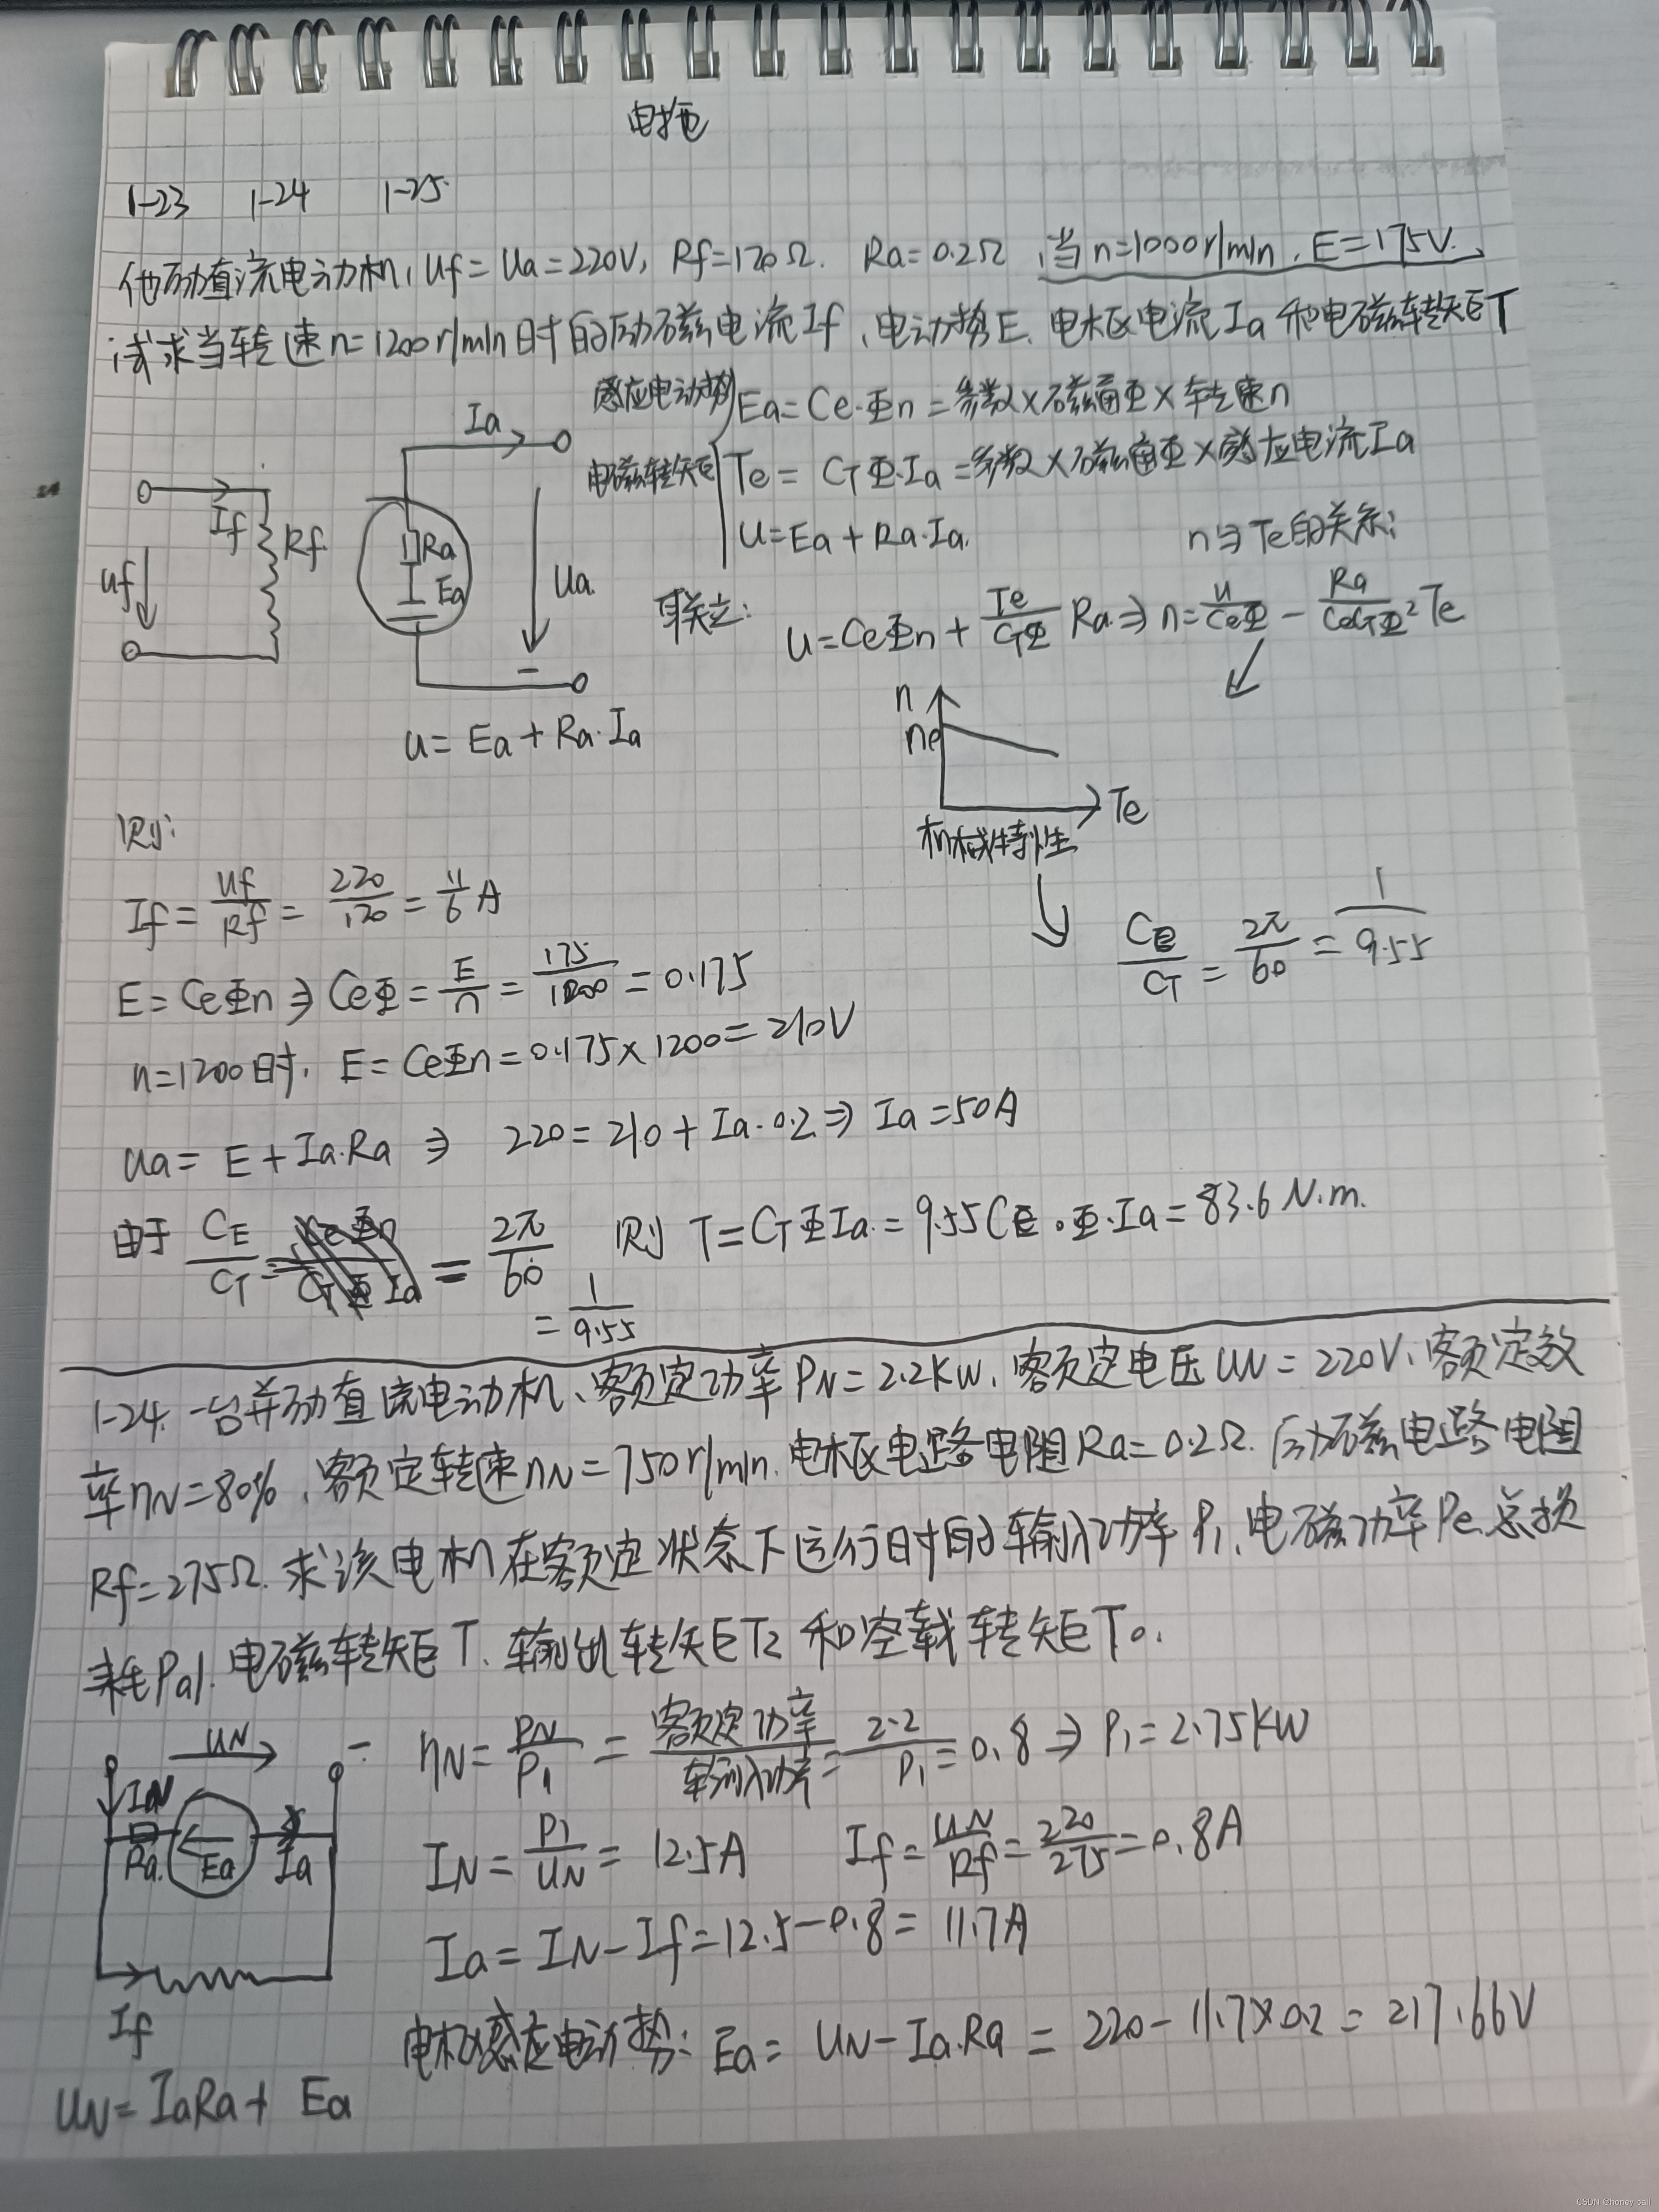 电拖
1-23 1-24 1-25
他励直流电动机, Uf=Ua=220V, Rf=120Ω. Ra=0.2Ω, 当n=1000r/min, E=175V.
试求当转速n=1200r/min时的励磁电流If、电动势E. 电枢电流Ia和电磁转矩T
感应电动势 Ea=Ce·Φn=参数×磁通Φ×转速n
电磁转矩 Te=CTΦ·Ia=参数×磁通Φ×感应电流Ia
U=Ea+Ra·Ia.
n与Te的关系:
联立: U=CeΦn+Te/CTΦ Ra⇒n=U/CeΦ-Ra/CeCTΦ²Te
Ia
If Rf
Uf
Ra
Ea
Ua
-
U=Ea+Ra·Ia
n
Te
机械特性
CE/CT=2π/60=1/9.55
则:
If=Uf/Rf=220/120=11/6A
E=CeΦn⇒CeΦ=E/n=175/1000=0.175
n=1200时, E=CeΦn=0.175×1200=210V
Ua=E+Ia·Ra⇒220=210+Ia·0.2⇒Ia=50A
由于 CE/CT=2π/60=1/9.55 则 T=CTΦIa=9.55CE·Φ·Ia=83.6N·m.
1-24. 一台并励直流电动机、额定功率PN=2.2KW、额定电压UN=220V、额定效
率ηN=80%、额定转速nN=750r/min. 电枢电路电阻Ra=0.2Ω. 励磁电路电阻
Rf=275Ω. 求该电机在额定状态下运行时的输入功率P1、电磁功率Pe.总损
耗Pal. 电磁转矩T、输出转矩T2和空载转矩T0.
UN -
IaN
Ra Ea Ia
If
UN=IaRa+Ea
ηN=PN/P1=额定功率/输入功率=2.2/P1=0.8⇒P1=2.75KW
IN=P1/UN=12.5A If=UN/Rf=220/275=0.8A
Ia=IN-If=12.5-0.8=11.7A
电枢感应电动势: Ea=UN-Ia·Ra=220-11.7×0.2=217.66V
CSDN @honey ball